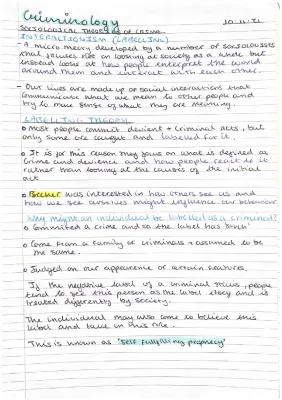 Criminology
10.11.21
SOCIOLOGICAL THEORIES OF CRIME
INTERACTIONISM (LABELLING)
- A micro theory developed by a number of sociologists
that focuses not on looking at society as a whole but
instead looks at how people interpret the world
around them and interact with each other.
- Our lives are made up of social interactions that
communicate what we mean to other people and
try to make sense of what they are meaning.
LABELLING THEORY
Most people commit deviant + criminal acts, but
only some are caught and labelled for it.
It is for this reason they focus on what is defined as
crime and deviance and how people react to it
rather than looking at the causes of the initial
act
Becker was interested in how others see us and
how we see ourselves might influence our behaviour
Why might an individual be labelled as a criminal?
Committed a crime and so the label has 'stuck'
Come from a family of criminals + assumed to be
the same.
Judged on our appearance or certain features.
If the negative label of a criminal sticks, people
tend to see this person as the label story and is
treated differently by society.
The individual may also come to believe this
label and take on this role.
This is known as 'self fulfilling prophecy'